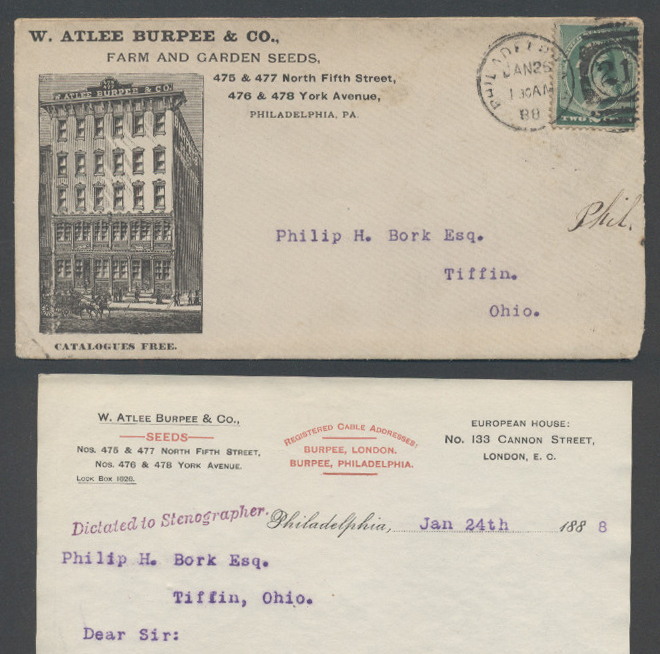 W. ATLEE BURPEE & CO.,
FARM AND GARDEN SEEDS,
475 & 477 North Fifth Street,
476 & 478 York Avenue,
PHILADELPHIA, PA.
W. ATLEE BURPEE & CO.
CATALOGUES FREE.
JAN 25
1 30 AM
88
21
Philip H. Bork Esq.
Tiffin.
Ohio.
Phil.
W. ATLEE BURPEE & CO.,
SEEDS
NOS. 475 & 477 NORTH FIFTH STREET,
NOS. 476 & 478 YORK AVENUE.
LOCK BOX 1626.
REGISTERED CABLE ADDRESSES:
BURPEE, LONDON.
BURPEE, PHILADELPHIA.
EUROPEAN HOUSE:
No. 133 CANNON STREET,
LONDON, E. C.
Dictated to Stenographer.
Philadelphia, Jan 24th 188 8
Philip H. Bork Esq.
Tiffin, Ohio.
Dear Sir: